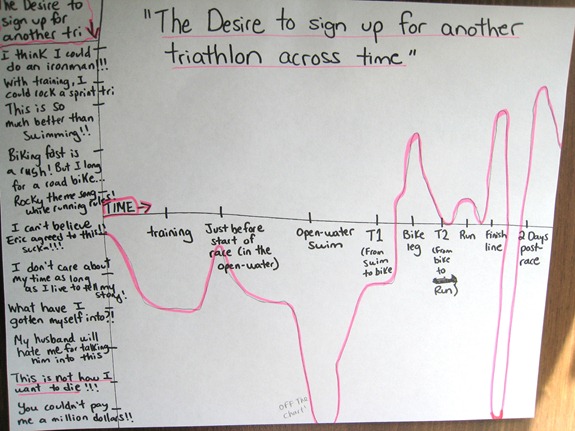 The Desire to
sign up for
another tri
"The Desire to sign up for another
triathlon across time"
I think I could
do an ironman!!!
With training, I
could rock a sprint tri
This is so
much better than
swimming!!
Biking fast is
a rush! But I long
for a road bike...
Rocky theme song
while running rules!
I can't believe
Eric agreed to this!!!
I don't care about
my time as long
as I live to tell my
story!
What have I
gotten myself into?!
My husband will
hate me for talking
him into this
This is not how I
want to die!!!
You couldn't pay
me a million dollars!!
TIME
training
Just before
start of
race (in the
open-water)
Open-water
swim
T1
(From
swim
to bike)
Bike
leg
T2
(From
bike
to
Run)
Run
Finish
line
2 Days
post-
race
OFF THE
chart!